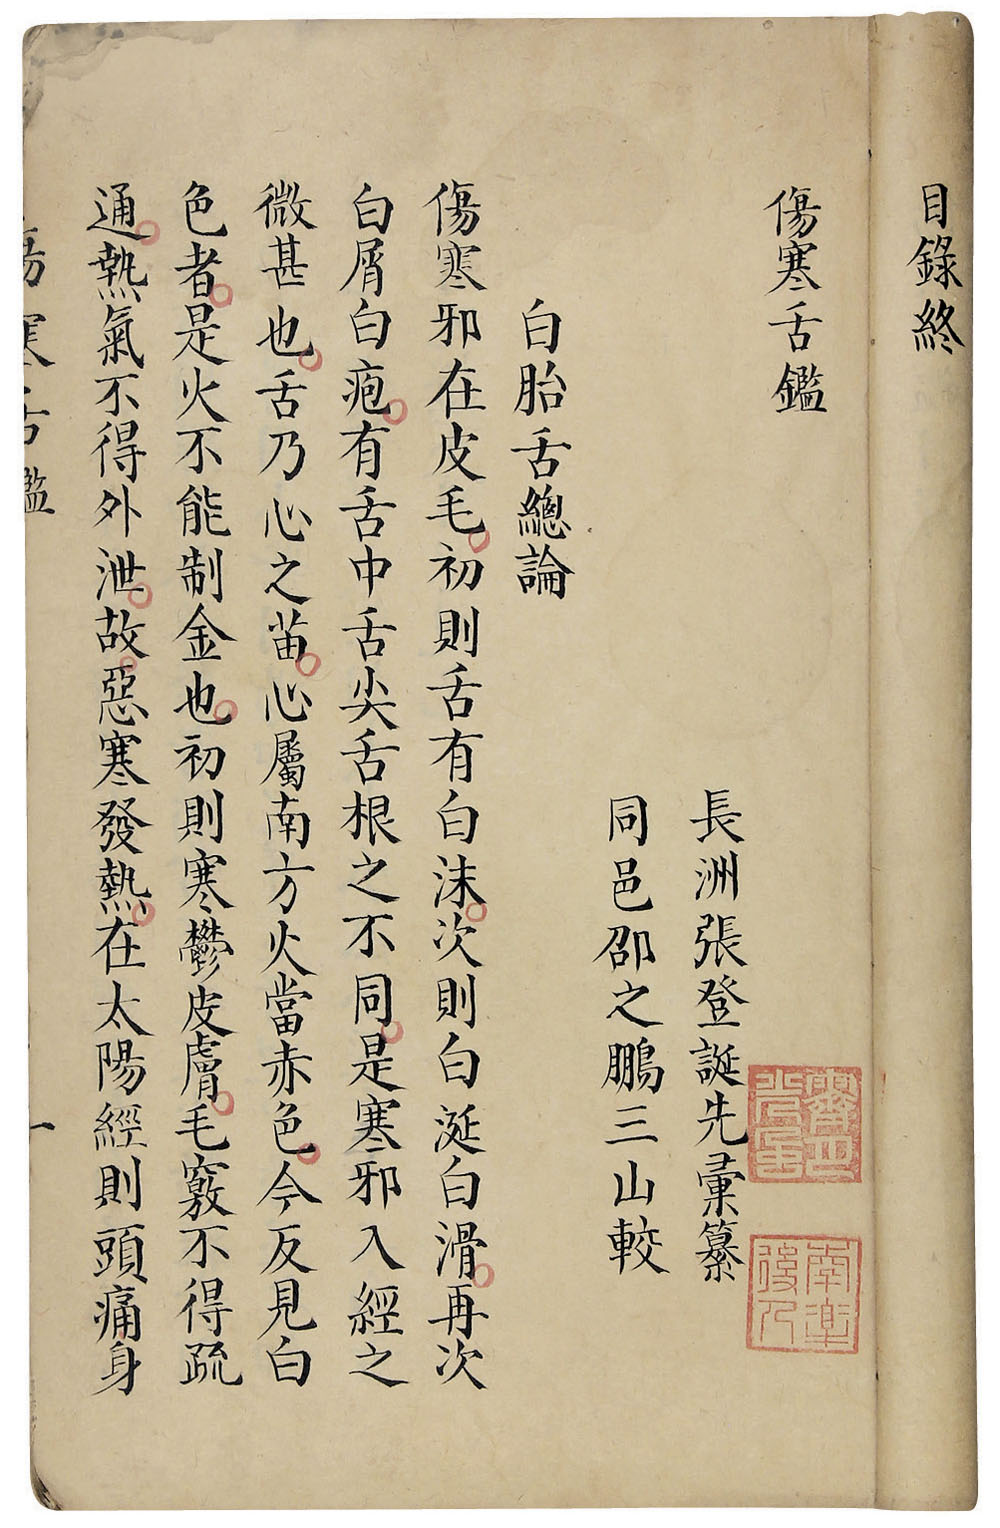 目錄終
傷寒舌鑑
長洲張登誕先彙纂
同邑邵之鵬三山較
白胎舌總論
傷寒邪在皮毛初則舌有白沫次則白涎白滑再次
白屑白疱有舌中舌尖舌根之不同是寒邪入經之
微甚也舌乃心之苗心屬南方火當赤色今反見白
色者是火不能制金也初則寒鬱皮膚毛竅不得疏
通熱氣不得外泄故惡寒發熱在太陽經則頭痛身
傷寒舌鑑
一